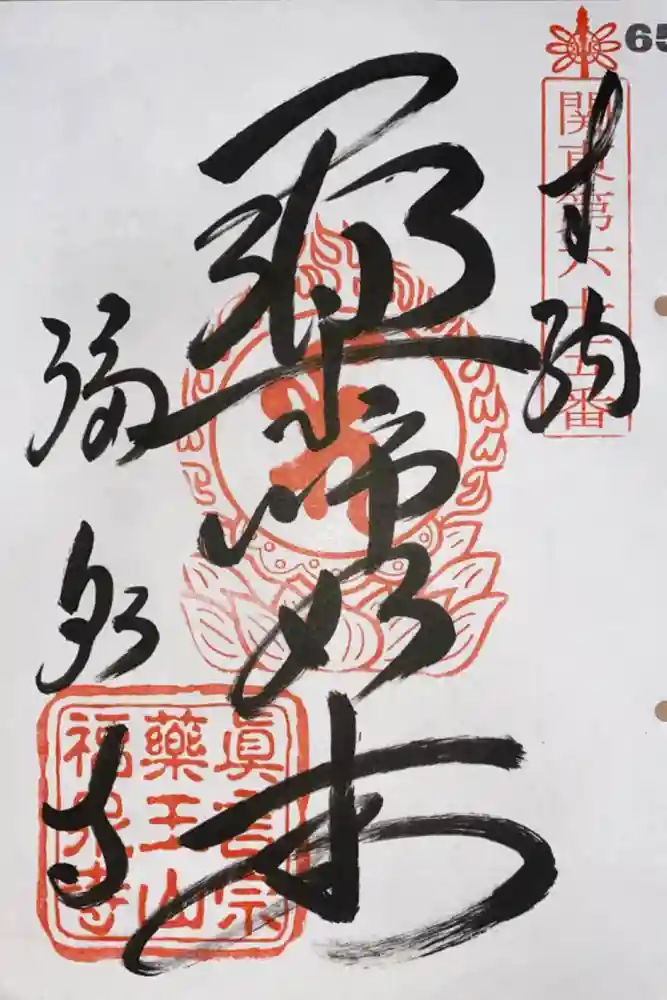 65
関東第六十五番
奉納
薬師如来
福泉寺
眞言宗
薬王山
福泉寺